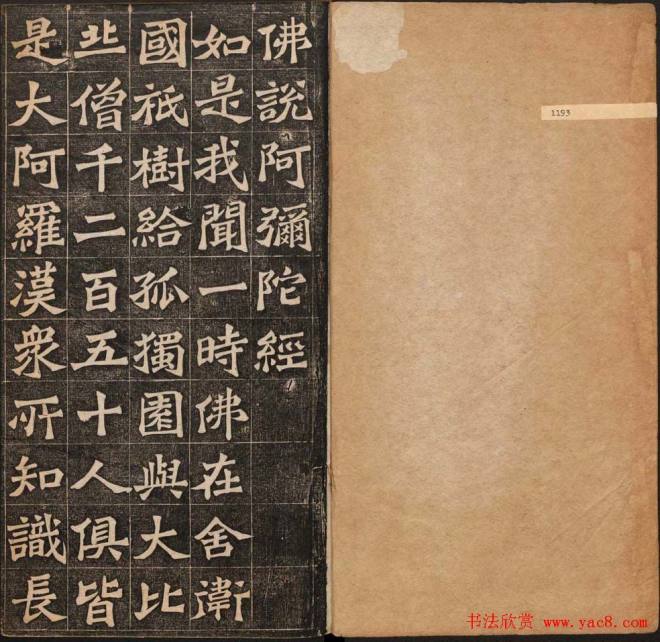 佛說阿彌陀經
如是我聞一時佛在舍衛
國祇樹給孤獨園與大比
丠僧千二百五十人俱皆
是大阿羅漢衆所知識長
1193
书法欣赏 www.yac8.com